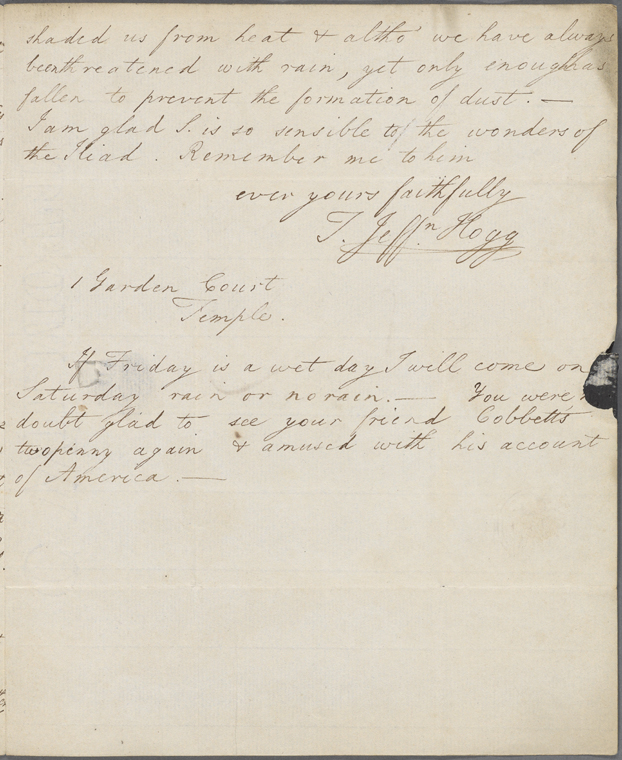 shaded us from heat & altho we have always
beenthreatened with rain, yet only enoughas
fallen to prevent the formation of dust. —
I am glad S. is so sensible to the wonders of
the Iliad. Remember me to him
ever yours faithfully
T. Jeffn Hogg
1 Garden Court
Temple.
If Friday is a wet day I will come on
Saturday rain or norain. — You were
doubt glad to see your friend Cobbett's
twopenny again & amused with his account
of America. —